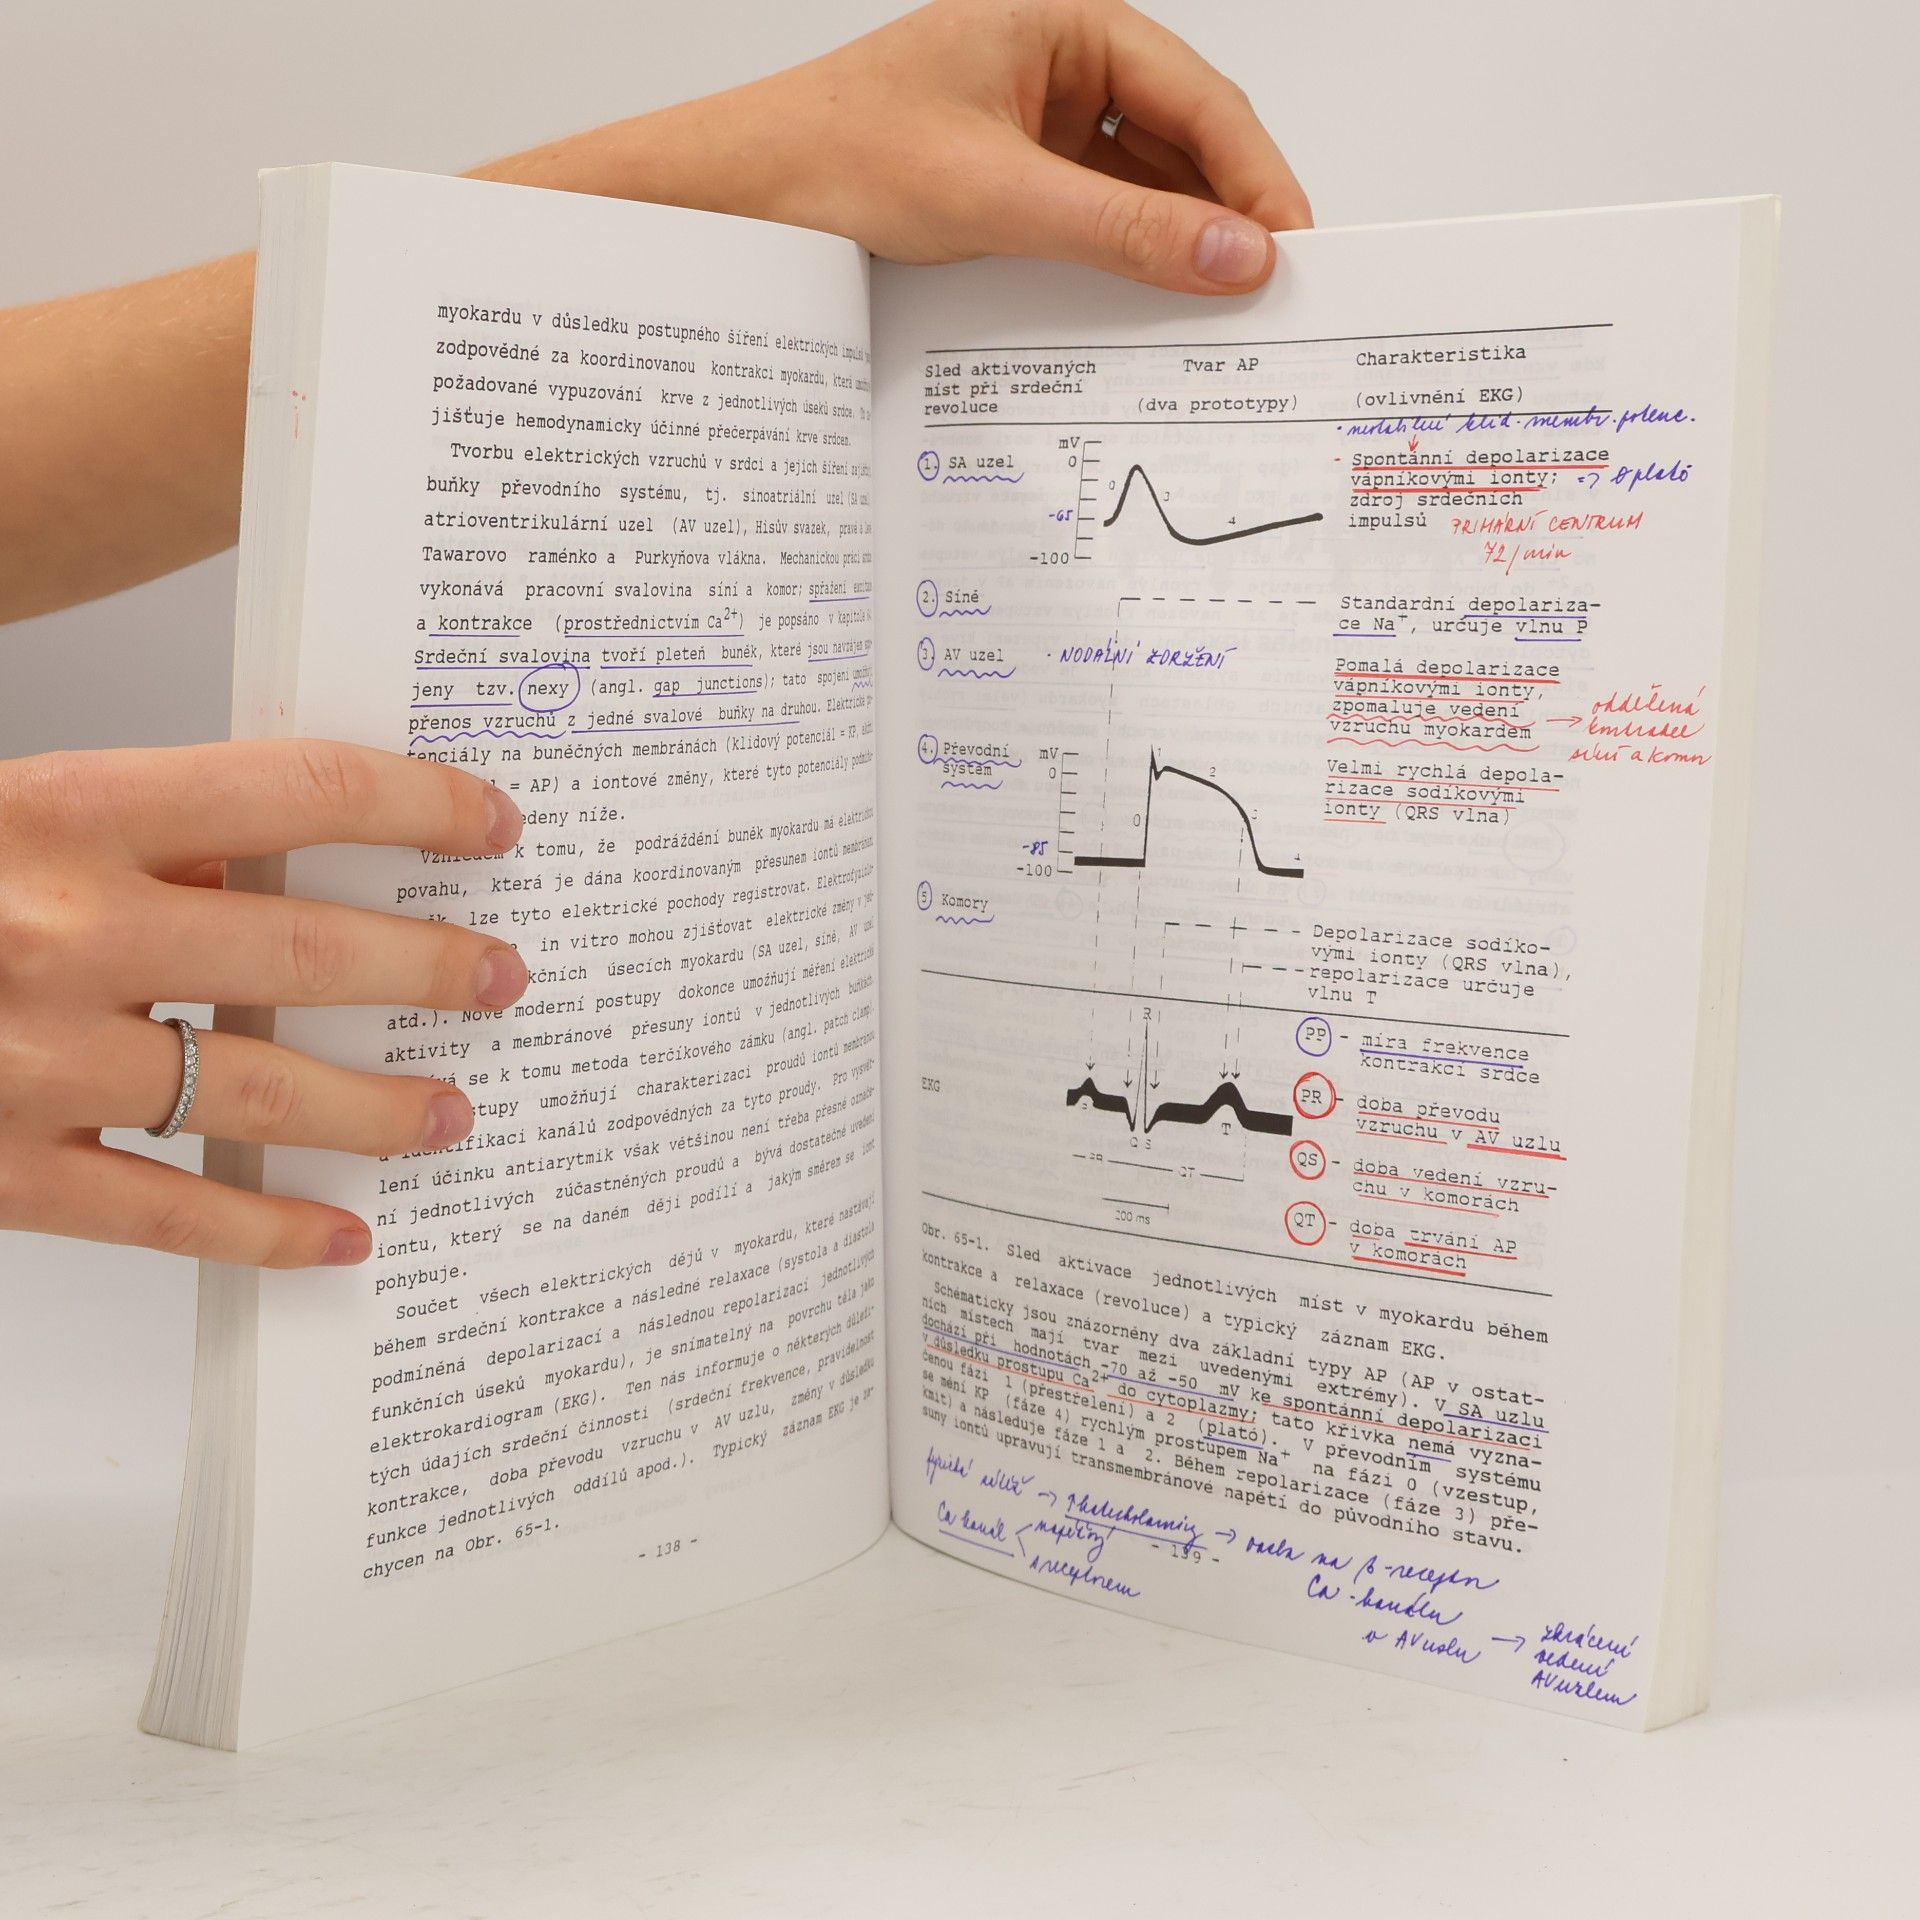 myokardu v důsledku postupného šíření elektrických
zodpovědné za koordinovanou kontrakci myokardu, která
požadované vypuzování krve z jednotlivých úseků srdce.
jišťuje hemodynamicky účinné přečerpávání krve srdcem.
Tvorbu elektrických vzruchů v srdci a jejich šíření
buňky převodního systému, tj. sinoatriální uzel (SA uzel,
atrioventrikulární uzel (AV uzel), Hisův svazek, pravé a
Tawarovo raménko a Purkyňova vlákna. Mechanickou práci
vykonává pracovní svalovina síní a komor; spřažení
a kontrakce (prostřednictvím Ca2+) je popsáno v kapitole
Srdeční svalovina tvoří pleteň buněk, které jsou navzájem
jeny tzv. nexy (angl. gap junctions); tato spojení
přenos vzruchů z jedné svalové buňky na druhou. Elektrické
tenciály na buněčných membránách (klidový potenciál = KP,
= AP) a iontové změny, které tyto potenciály
edeny níže.
Vzhledem k tomu, že podráždění buněk myokardu má
povahu, která je dána koordinovaným přesunem iontů
lze tyto elektrické pochody registrovat.
in vitro mohou zjišťovat elektrické změny v
kčních úsecích myokardu (SA uzel, síně, AV uzel
atd.). Nové moderní postupy dokonce umožňují měření
aktivity a membránové přesuny iontů v jednotlivých buňkách.
se k tomu metoda terčíkového zámku (angl. patch clamp).
stupy umožňují charakterizaci proudů iontů
a identifikaci kanálů zodpovědných za tyto proudy. Pro
lení účinku antiarytmik však většinou není třeba přesné
ní jednotlivých zúčastněných proudů a bývá dostatečné uvedení
iontu, který se na daném ději podílí a jakým směrem se iont
pohybuje.
Součet všech elektrických dějů v myokardu, které nastávají
během srdeční kontrakce a následné relaxace (systola a diastola
podmíněná depolarizací a následnou repolarizací jednotlivých
funkčních úseků myokardu), je snímatelný na povrchu těla jako
elektrokardiogram (EKG). Ten nás informuje o některých důleži-
tých údajích srdeční činnosti (srdeční frekvence, pravidelnost
kontrakce, doba převodu vzruchu v AV uzlu, změny v důsledku
funkce jednotlivých oddílů apod.). Typický záznam EKG je za-
chycen na Obr. 65-1.
- 138 -
Sled aktivovaných míst při srdeční revoluce
Tvar AP
(dva prototypy)
Charakteristika
(ovlivnění EKG)
· nestabilní klid. membr. potenc.
1. SA uzel
mV
0
-65
-100
0
3
4
- Spontánní depolarizace
vápníkovými ionty; => 0 plató
zdroj srdečních
impulsů PRIMÁRNÍ CENTRUM
72/min
2. Síně
Standardní depolariza-
ce Na+, určuje vlnu P
3. AV uzel · NODÁLNÍ ZDRŽENÍ
Pomalá depolarizace
vápníkovými ionty,
zpomaluje vedení
vzruchu myokardem
→ oddělená
kontrakce
síní a komor
4. Převodní
systém
mV
0
-85
-100
0
1
2
3
4
Velmi rychlá depola-
rizace sodíkovými
ionty (QRS vlna)
5 Komory
Depolarizace sodíko-
vými ionty (QRS vlna),
repolarizace určuje
vlnu T
EKG
R
P
Q S
T
PR
QT
200 ms
PP - míra frekvence
kontrakcí srdce
PR - doba převodu
vzruchu v AV uzlu
QS - doba vedení vzru-
chu v komorách
QT - doba trvání AP
v komorách
Obr. 65-1. Sled aktivace jednotlivých míst v myokardu během
kontrakce a relaxace (revoluce) a typický záznam EKG.
Schématicky jsou znázorněny dva základní typy AP (AP v ostat-
ních místech mají tvar mezi uvedenými extrémy). V SA uzlu
dochází při hodnotách -70 až -50 mV ke spontánní depolarizaci
v důsledku prostupu Ca2+ do cytoplazmy; tato křivka nemá vyzna-
čenou fázi 1 (přestřelení) a 2 (plató). V převodním systému
se mění KP (fáze 4) rychlým prostupem Na+ na fázi 0 (vzestup,
kmit) a následuje fáze 1 a 2. Během repolarizace (fáze 3) pře-
suny iontů upravují transmembránové napětí do původního stavu.
fyzická zátěž → katecholaminy → vazba na β-receptor
Ca kanál
napěťový
s receptorem
- 139 -
Ca-kanálu
v AV uzlu → zkrácení
vedení
AV uzlem